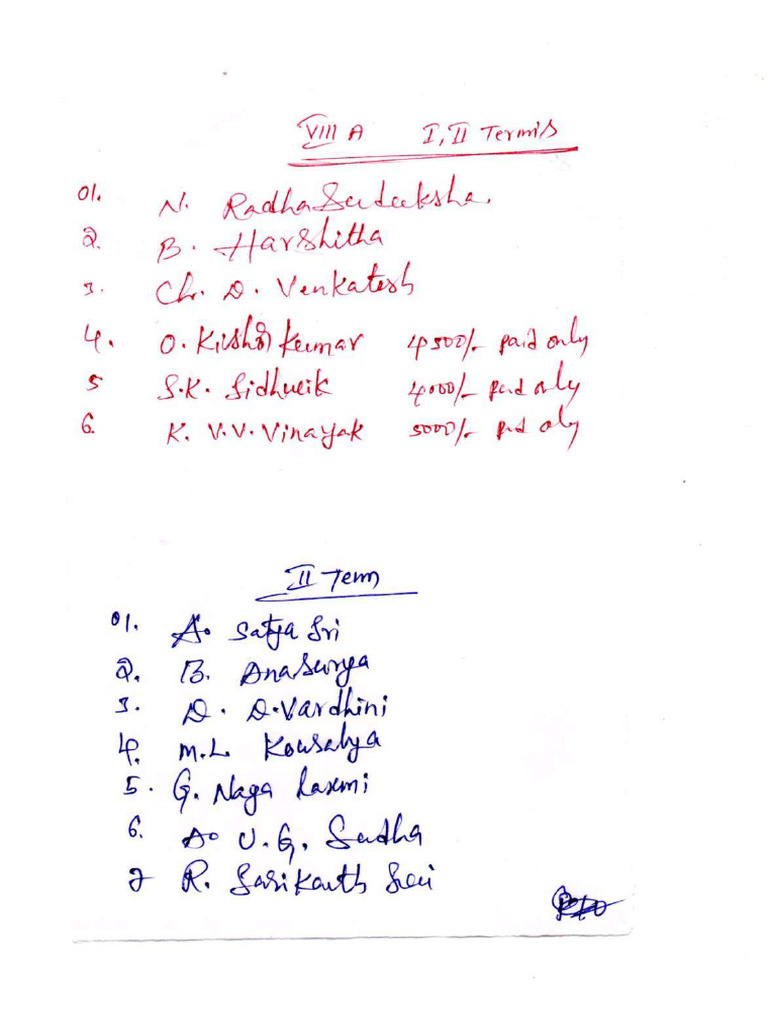 VIII A I, II Termis
01. N. Radha Sudeeksha.
2. B. Harshitha
3. Ch. D. Venkatesh
4. O. Kishor kumar 4500/- paid only
5 S.K. Sidhueik 4000/- paid only
6. K. V.V. Vinayak 5000/- paid only
II Term
01. A. Satya Sri
2. B. Anasurya
3. D. D. Vardhini
4. M.L. Kowsalya
5. G. Naga Laxmi
6. A. U.G. Sudha
7 R. Sasikanth Sai